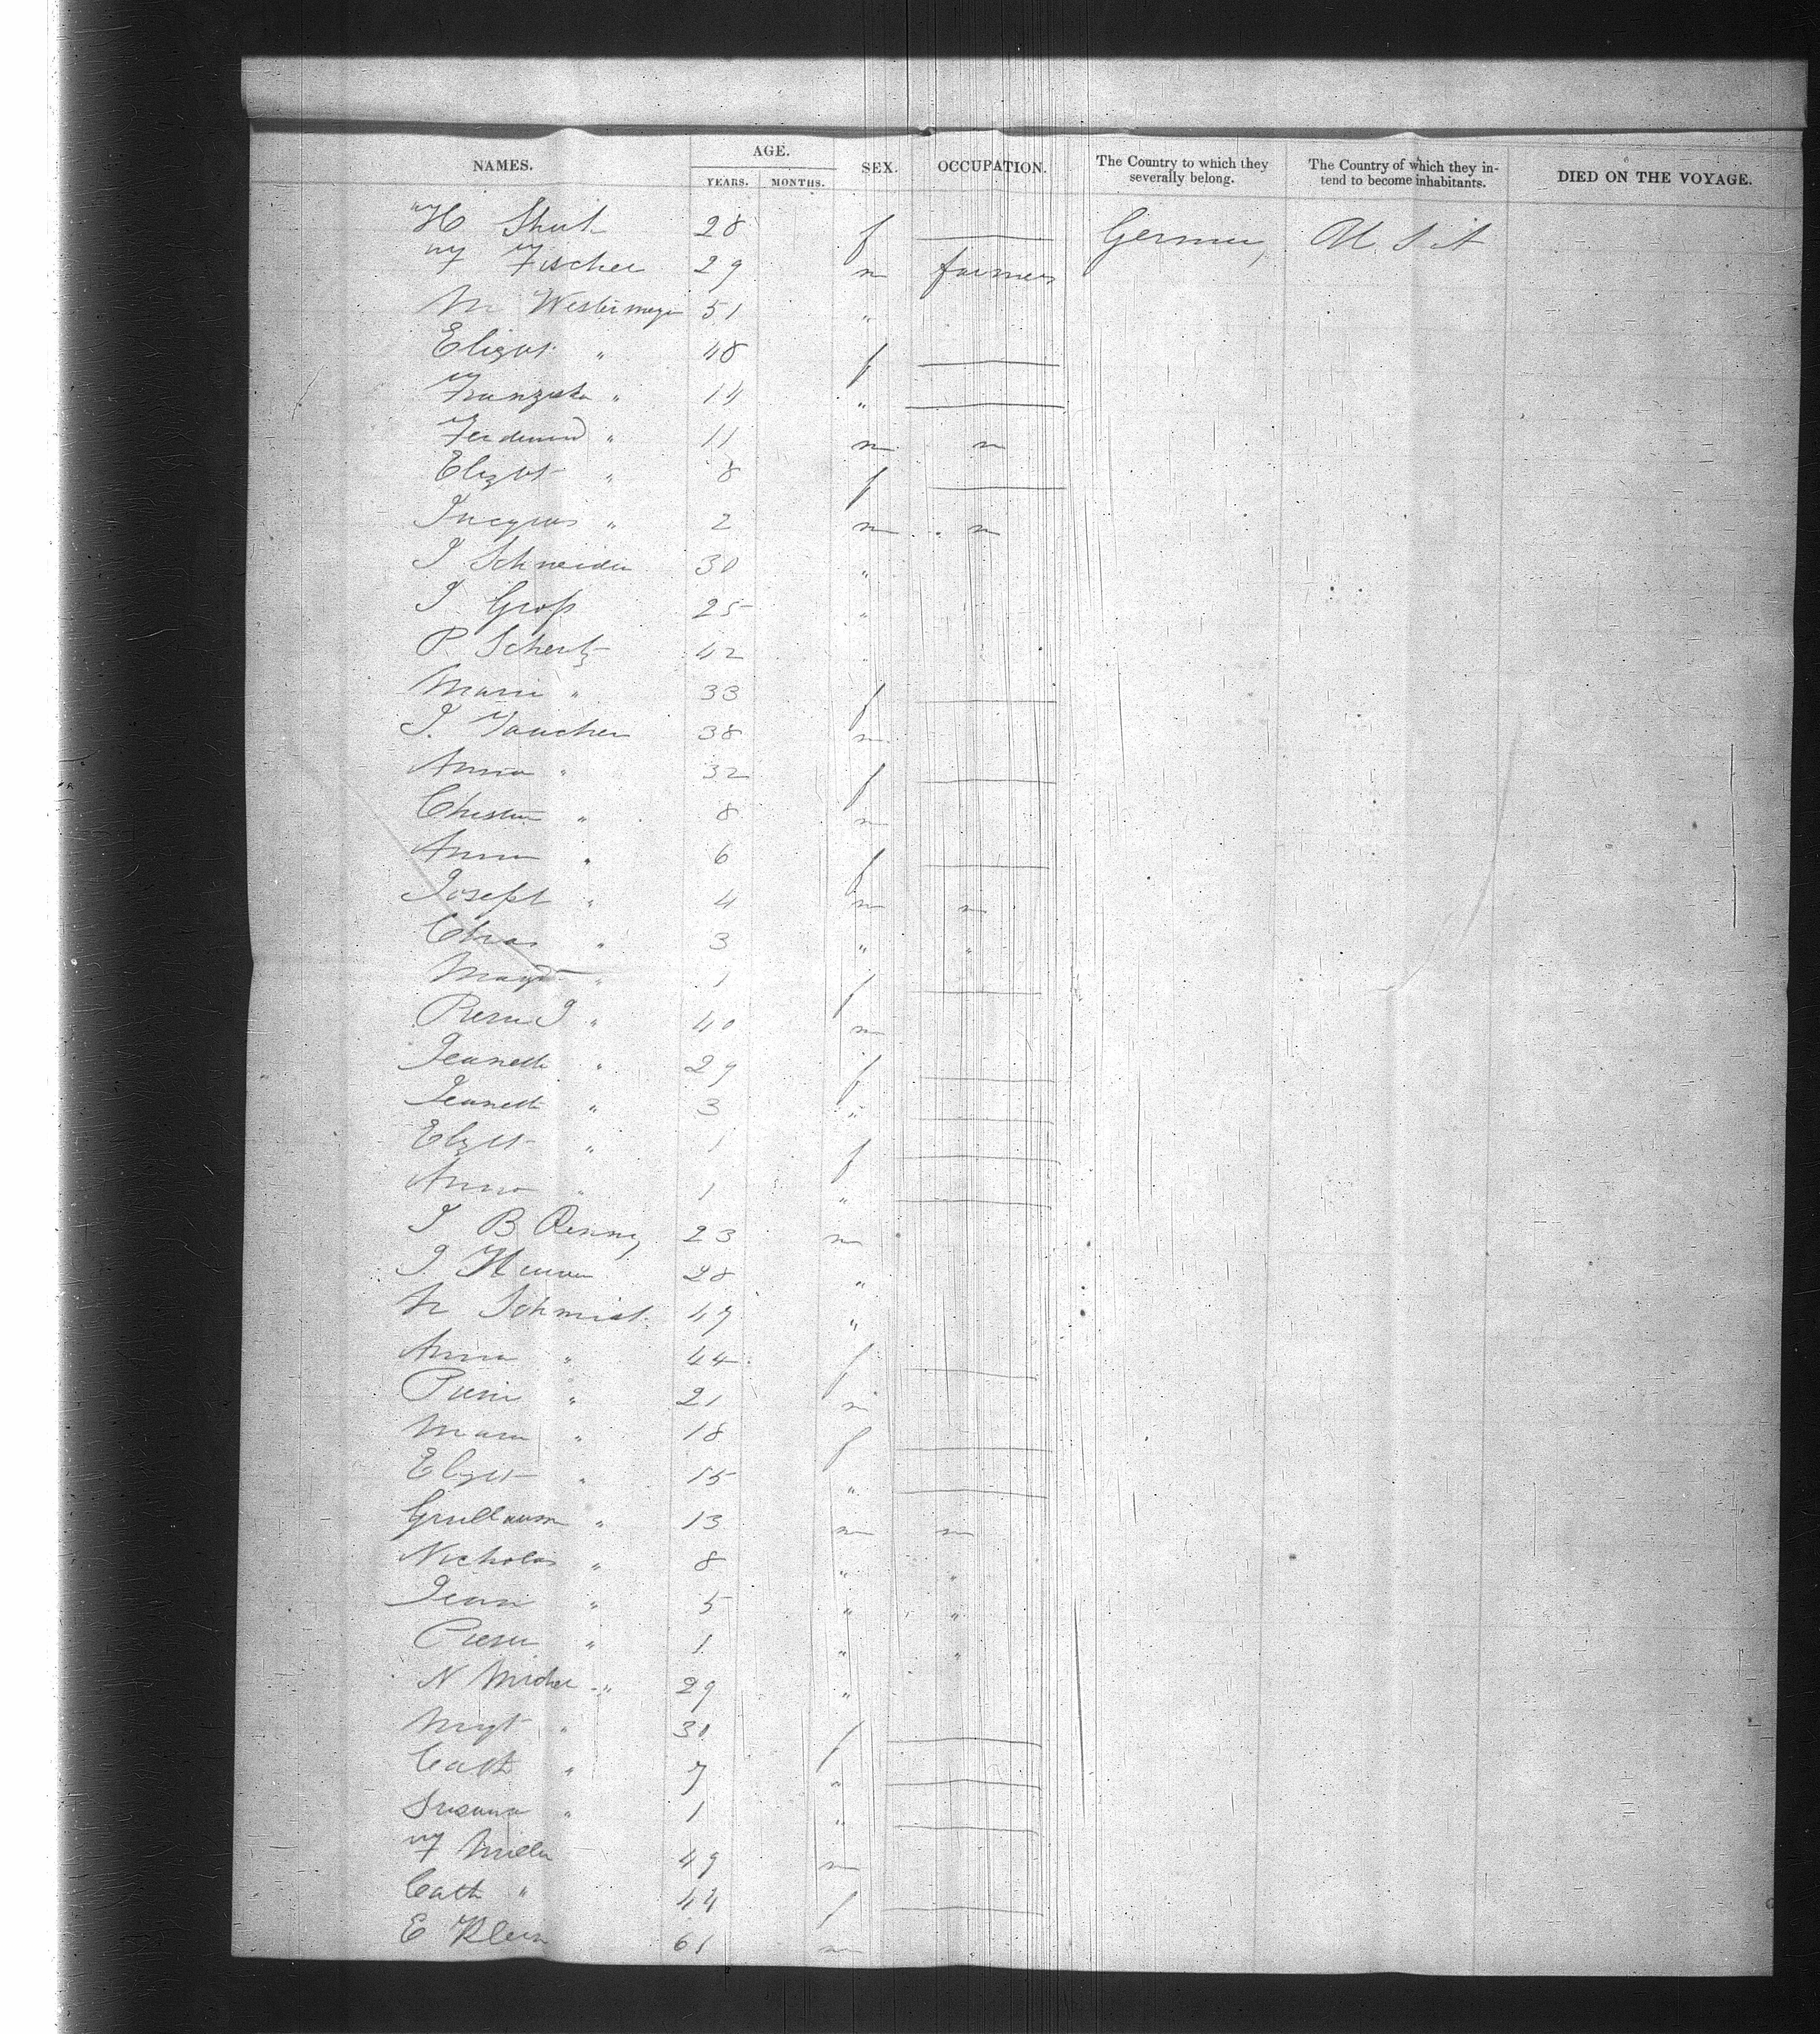 NAMES. AGE. YEARS. MONTHS. SEX. OCCUPATION. The Country to which they severally belong. The Country of which they intend to become inhabitants. DIED ON THE VOYAGE.
H 28 f —
F Fischer 29 m farmer
51 "
Elizbt " 48 f —
Franziska " 14 " —
Ferdinand " 11 m m
Elizbt " 8 f —
Jacques " 2 m m
J Schneider 30 "
J Groß 25 "
P. Schertz 42
Marie " 33 f —
J. 38 m
Anna " 32 f —
" 8 m
Anna " 6 f —
Joseph " 4 m m
Chas " 3 " "
" 1 f —
Pierre J " 40 m
Jeanette " 29 f —
Jeanette " 3 " —
Elzbt " 1 f —
Anna " 1 " —
J B 23 m
J 28 "
N Schmidt 49 "
Anna " 44 f —
Pierre " 21 m
Maria " 18 f —
Elzbt " 15 " —
Guillaum " 13 m m
Nicholas " 8 " "
Jean " 5 " "
Pierre " 1 " "
N Michel " 29 "
Mrgt " 30 f —
Cath " 7 " —
Susanna " 1 " —
F Miller 49 m
Cath " 44 f —
E Klein 61 m